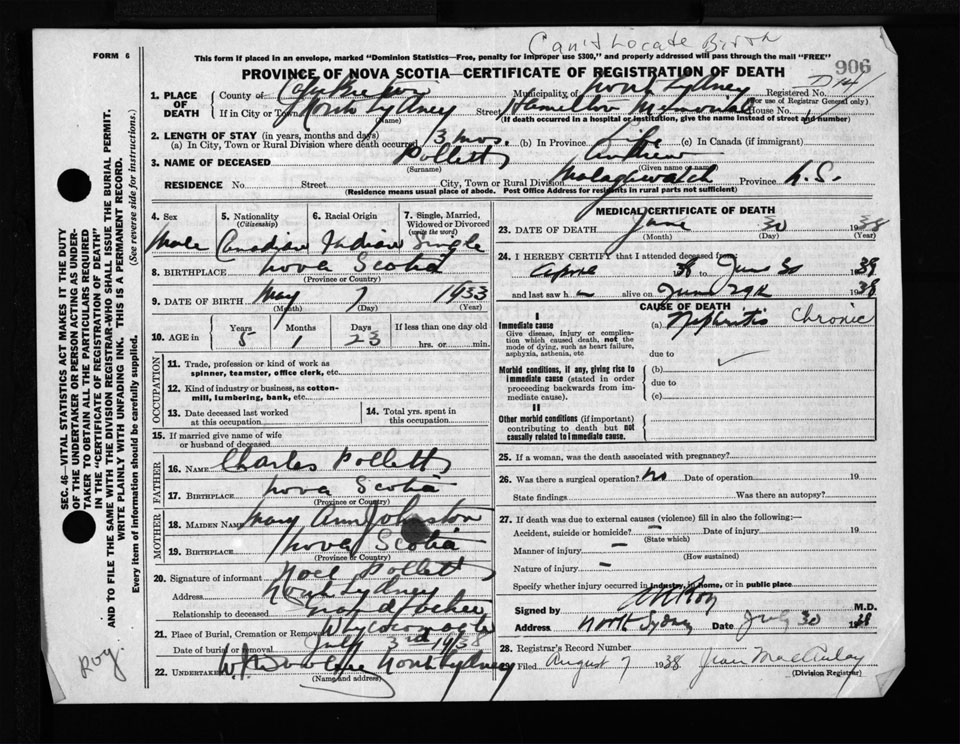 Can't Locate Birth
FORM 6
This form if placed in an envelope, marked "Dominion Statistics—Free, penalty for improper use $300," and properly addressed will pass through the mail "FREE"
906
PROVINCE OF NOVA SCOTIA—CERTIFICATE OF REGISTRATION OF DEATH
1. PLACE OF DEATH
County of Cape Breton Municipality of North Sydney Registered No.
(For use of Registrar General only)
If in City or Town North Sydney Street Hamilton Memorial House No.
(name) (If death occurred in a hospital or institution, give the name instead of street and number)
2. LENGTH OF STAY (in years, months and days)
(a) In City, Town or Rural Division where death occurred 3 mos. (b) In Province Life (c) In Canada (if immigrant)
3. NAME OF DECEASED Polletts Andrew
(Surname) (Given name or names)
RESIDENCE No. Street City, Town or Rural Division Malagawatch Province N.S.
(Residence means usual place of abode. Post Office Address for residents in rural parts not sufficient)
4. Sex 5. Nationality (Citizenship) 6. Racial Origin 7. Single, Married, Widowed or Divorced (write the word)
Male Canadian Indian Single
8. BIRTHPLACE Nova Scotia
(Province or Country)
9. DATE OF BIRTH May 7 1933
(Month) (Day) (Year)
10. AGE in Years Months Days If less than one day old
5 1 23 hrs. or min.
OCCUPATION
11. Trade, profession or kind of work as spinner, teamster, office clerk, etc.
12. Kind of industry or business, as cotton-mill, lumbering, bank, etc.
13. Date deceased last worked at this occupation
14. Total yrs. spent in this occupation
15. If married give name of wife or husband of deceased
FATHER
16. NAME Charles Polletts
17. BIRTHPLACE Nova Scotia
(Province or Country)
MOTHER
18. MAIDEN NAME Mary Ann Johnston
19. BIRTHPLACE Nova Scotia
(Province or Country)
20. Signature of informant Noel Polletts
Address North Sydney
Relationship to deceased Grandfather
21. Place of Burial, Cremation or Removal Whycocomagh
Date of burial or removal July 3rd 1938
22. UNDERTAKER North Sydney
(Name and address)
MEDICAL CERTIFICATE OF DEATH
23. DATE OF DEATH June 30 1938
(Month) (Day) (Year)
24. I HEREBY CERTIFY that I attended deceased from
to June 30
and last saw h alive on June 29th 1938
CAUSE OF DEATH
I
Immediate cause
Give disease, injury or complication which caused death, not the mode of dying, such as heart failure, asphyxia, asthenia, etc
(a) Nephritis Chronic
due to
Morbid conditions, if any, giving rise to immediate cause (stated in order proceeding backwards from immediate).
(b)
due to
(c)
II
Other morbid conditions (if important) contributing to death but not causally related to immediate cause.
25. If a woman, was the death associated with pregnancy?
26. Was there a surgical operation? no Date of operation 19
State findings Was there an autopsy?
27. If death was due to external causes (violence) fill in also the following:—
Accident, suicide or homicide? – Date of injury 19
(State which)
Manner of injury –
(How sustained)
Nature of injury –
Specify whether injury occurred in industry, in home, or in public place
Signed by M.D.
Address North Sydney Date July 30
28. Registrar's Record Number
Filed August 7 1938 Jean MacAulay
(Division Registrar)
SEC. 46—VITAL STATISTICS ACT MAKES IT THE DUTY
OF THE UNDERTAKER OR PERSON ACTING AS UNDER-
TAKER TO OBTAIN ALL THE PARTICULARS REQUIRED
IN THE "CERTIFICATE OF REGISTRATION OF DEATH"
AND TO FILE THE SAME WITH THE DIVISION REGISTRAR—WHO SHALL ISSUE THE BURIAL PERMIT.
WRITE PLAINLY WITH UNFADING INK. THIS IS A PERMANENT RECORD.
Every item of information should be carefully supplied. (See reverse side for instructions.)